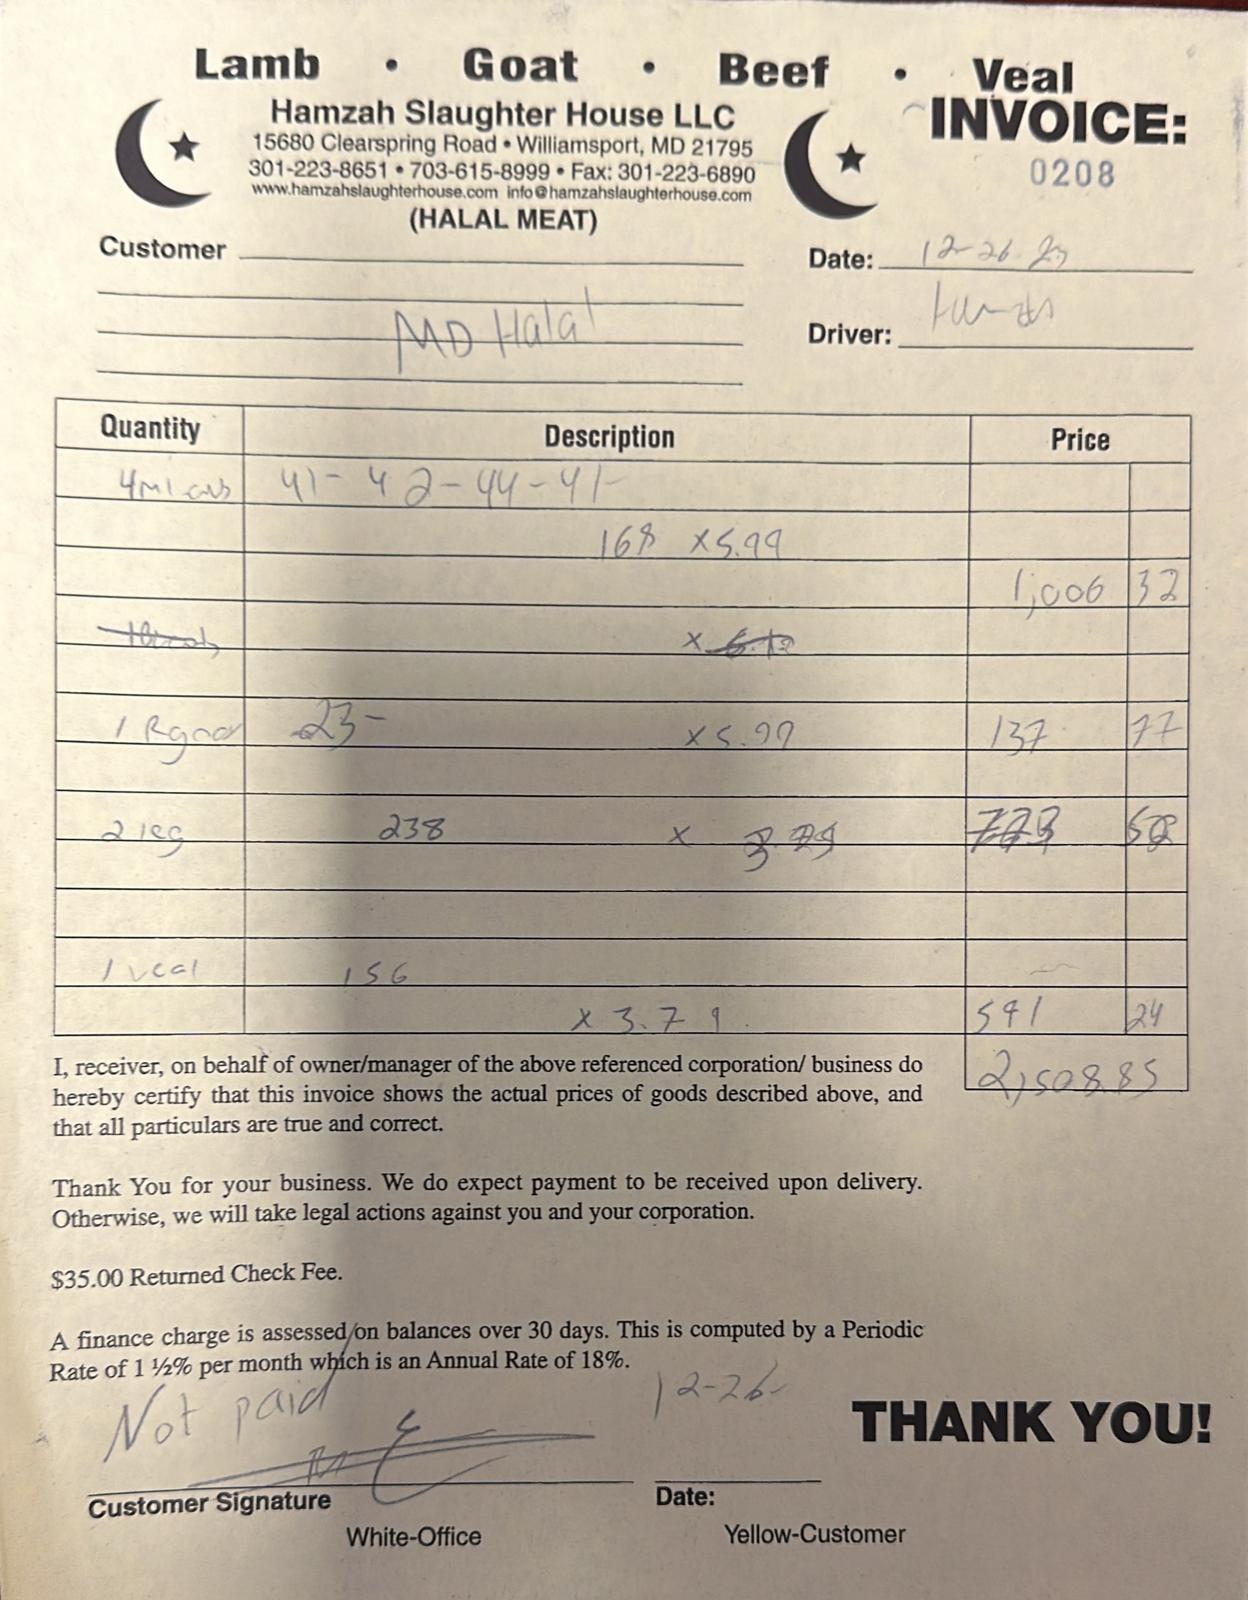 Lamb • Goat • Beef • Veal
Hamzah Slaughter House LLC
15680 Clearspring Road • Williamsport, MD 21795
301-223-8651 • 703-615-8999 • Fax: 301-223-6890
www.hamzahslaughterhouse.com info@hamzahslaughterhouse.com
(HALAL MEAT)
INVOICE:
0208
Customer
MD Halal
Date: 12-26-23
Driver:
Quantity Description Price
41- 42- 44- 41-
168 x5.99
1,006 32
x
1 23- x5.99 137 77
2 leg 238 x
1 veal 156
x 3.79 591 24
2,508.85
I, receiver, on behalf of owner/manager of the above referenced corporation/ business do
hereby certify that this invoice shows the actual prices of goods described above, and
that all particulars are true and correct.
Thank You for your business. We do expect payment to be received upon delivery.
Otherwise, we will take legal actions against you and your corporation.
$35.00 Returned Check Fee.
A finance charge is assessed on balances over 30 days. This is computed by a Periodic
Rate of 1 ½% per month which is an Annual Rate of 18%.
Not paid
12-26-
THANK YOU!
Customer Signature
Date:
White-Office
Yellow-Customer